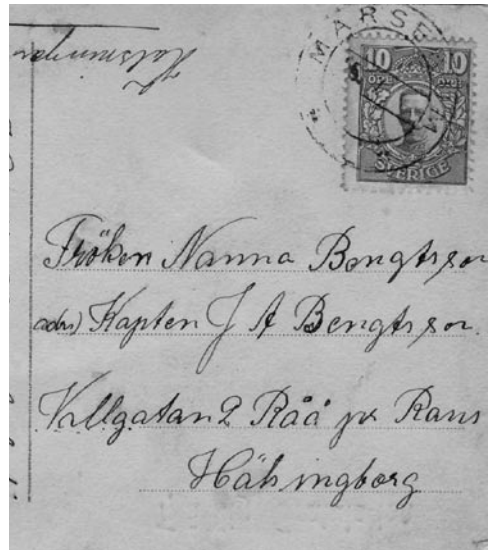 Hälsningar
MARSE
10 10
ÖRE ÖRE
SVERIGE
Fröken Nanna Bengtsson
adr) Kapten J A Bengtsson.
Vallgatan 2 Råå pr Raus
Hälsingborg